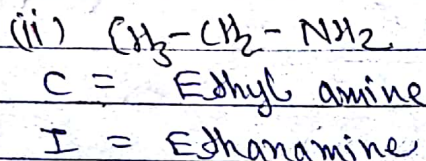 (ii) CH₃-CH₂-NH₂
C = Ethyl amine
I = Ethanamine